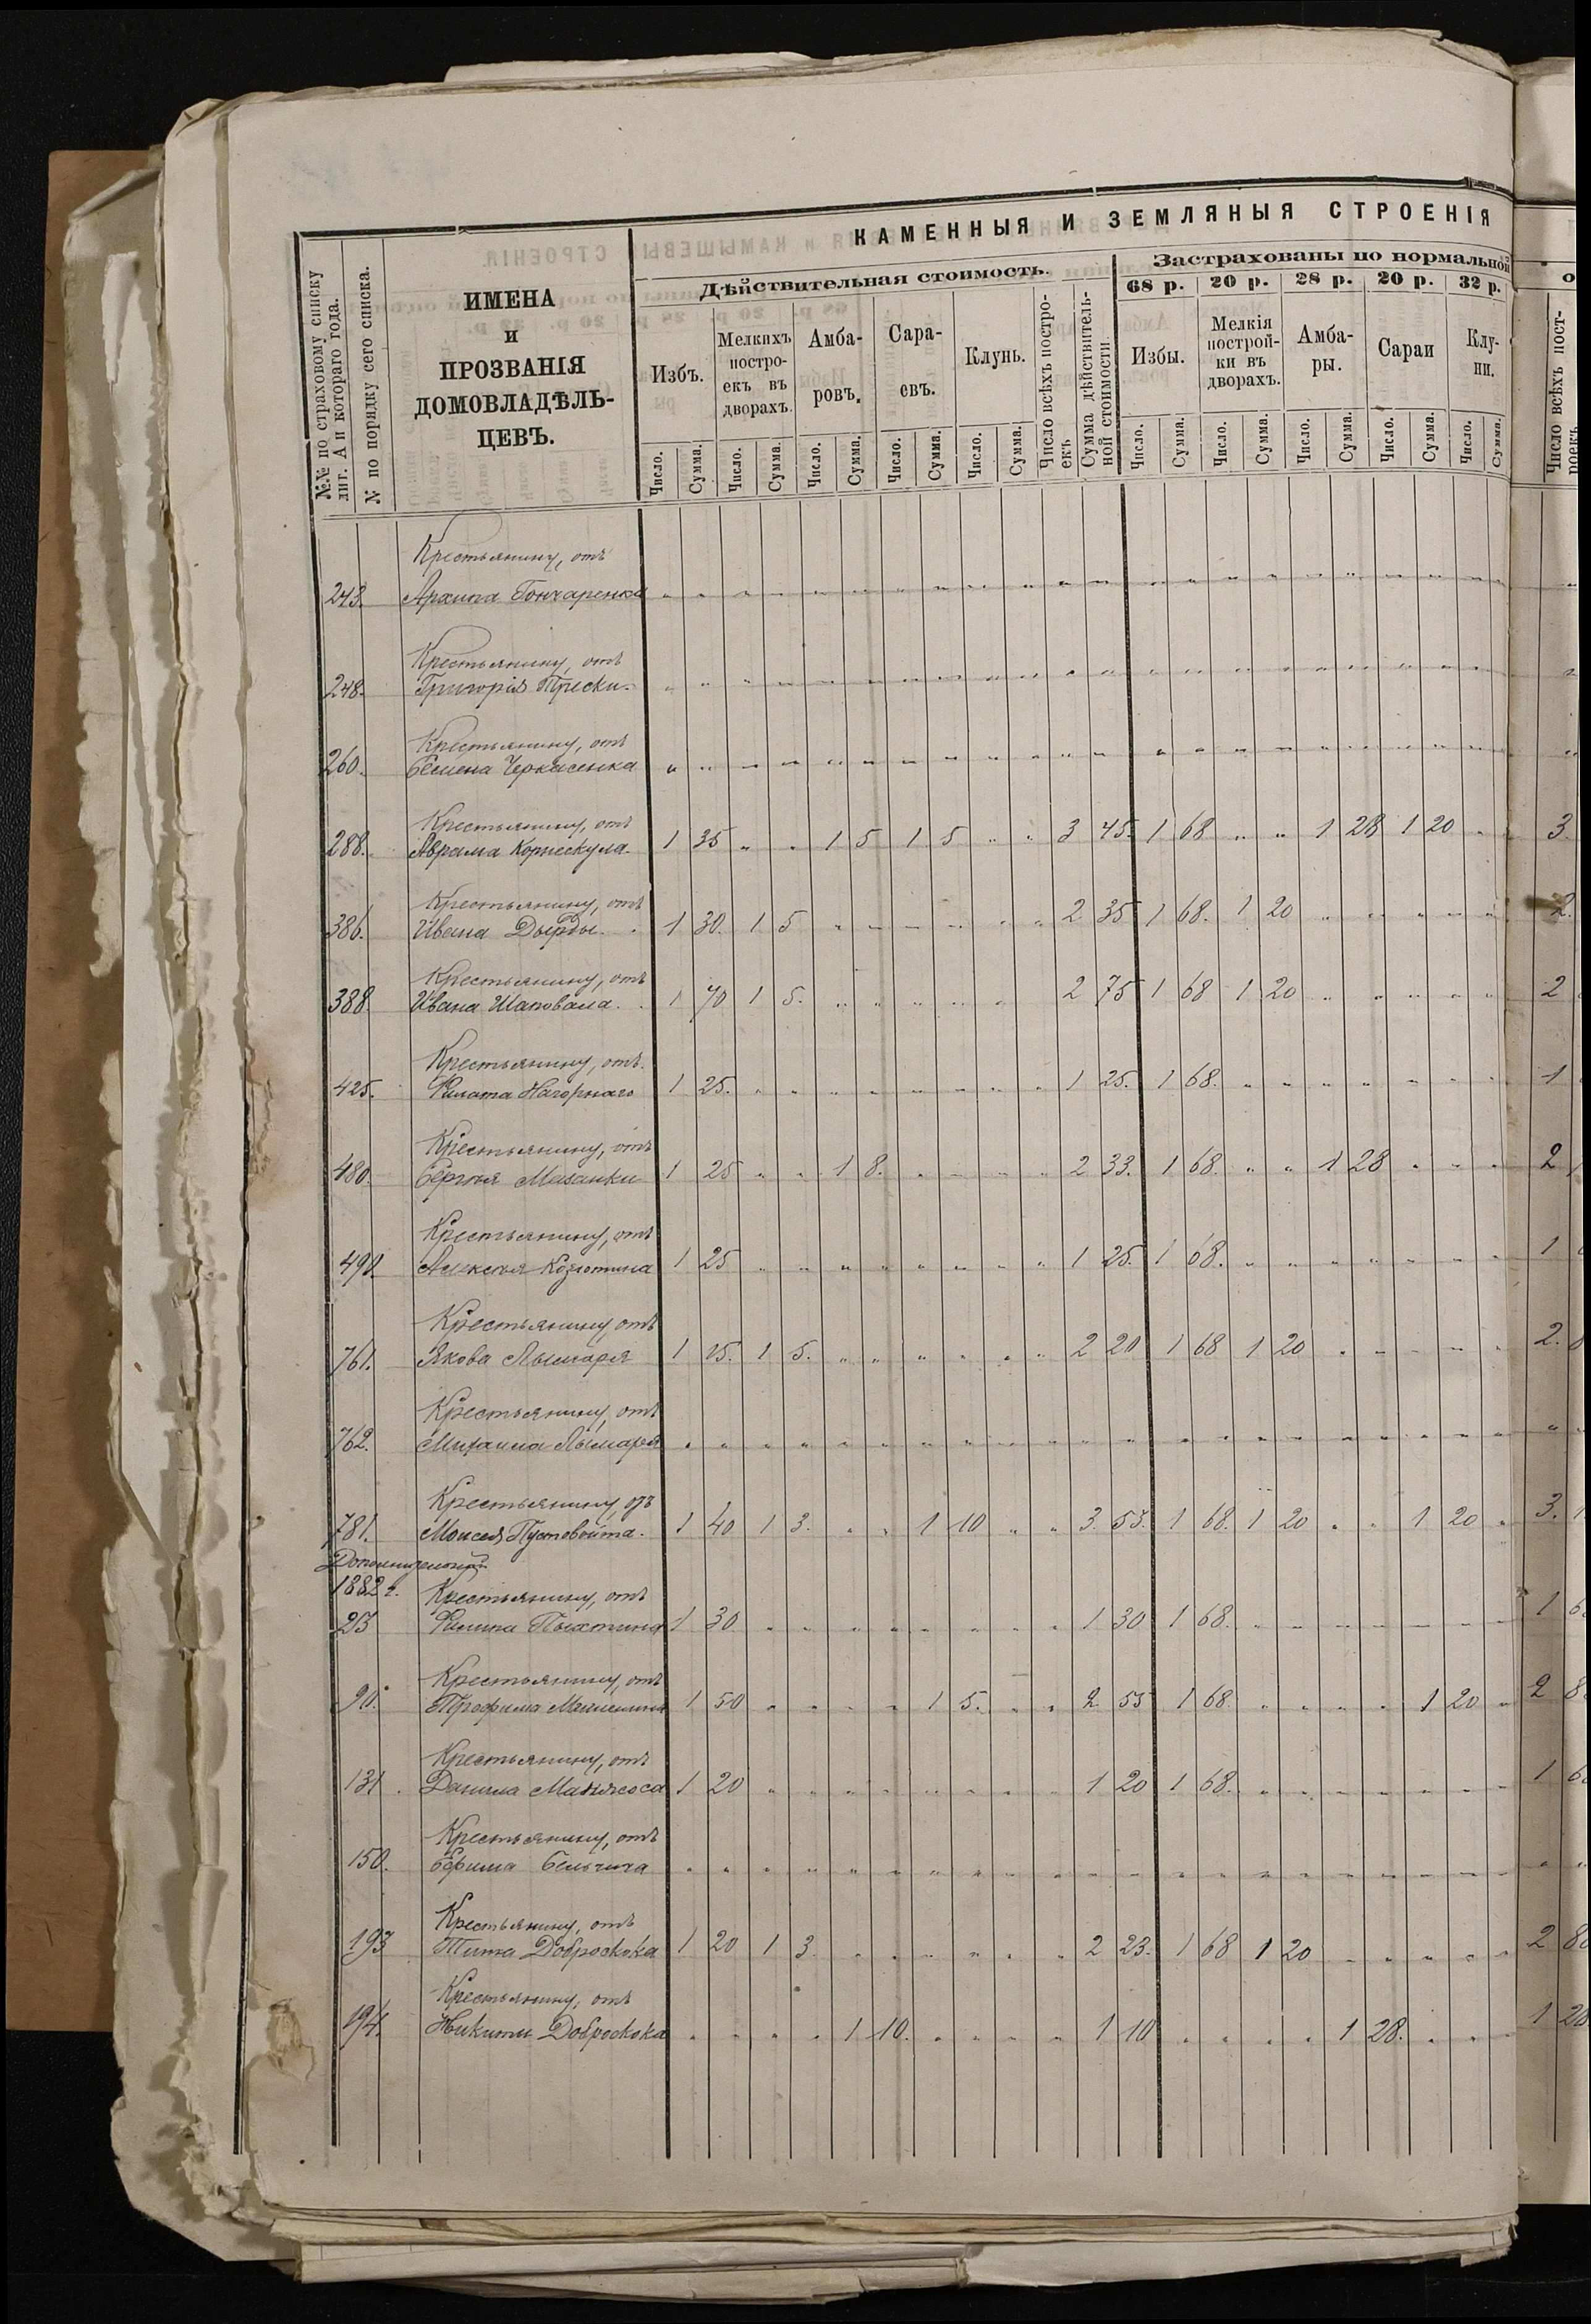 КАМЕННЫЯ И ЗЕМЛЯНЫЯ СТРОЕНІЯ
№№ по страховому списку
лит. А и котораго года.
№ по порядку сего списка.
ИМЕНА
и
ПРОЗВАНІЯ
ДОМОВЛАДѢЛЬ-
ЦЕВЪ.
Дѣйствительная стоимость.
Застрахованы по нормальной
68 р. 20 р. 28 р. 20 р. 32 р.
Избъ.
Мелкихъ
постро-
екъ въ
дворахъ.
Амба-
ровъ.
Сара-
евъ.
Клунь.
Число всѣхъ постро-
екъ
Сумма дѣйствитель-
ной стоимости.
Избы.
Мелкія
построй-
ки въ
дворахъ.
Амба-
ры.
Сараи
Клу-
ни.
Число всѣхъ пост-
роекъ
Число. Сумма. Число. Сумма. Число. Сумма. Число. Сумма. Число. Сумма. Число. Сумма. Число. Сумма. Число. Сумма. Число. Сумма. Число. Сумма.
Крестьянину, отъ
243. Архипа Гончаренка
Крестьянину, отъ
248. Григорія Трески
Крестьянину, отъ
260. Семена Черкасенка
Крестьянину, отъ
288. Аврама Корнескула 1 35 " " 1 5 1 5 " " 3 45. 1 68 " " 1 28 1 20 " 3.
Крестьянину, отъ
386. Ивана Дырды. 1 30. 1 5 2 35 1 68. 1 20 2.
Крестьянину, отъ
388. Ивана Шаповала. 1 70 1 5. 2 75 1 68 1 20 2
Крестьянину, отъ
425. Филата Нагорнаго 1 25. 1 25. 1 68. 1
Крестьянину, отъ
480. Сергѣя Мазанки 1 25 " " 1 8. 2 33. 1 68. " " 1 28 2
Крестьянину, отъ
Алексѣя 1 25 1 25. 1 68. 1
Крестьянину, отъ
761. Якова Лымаря 1 15. 1 5. 2 20 1 68 1 20 2.
Крестьянину, отъ
762. Михаила Лымаря
Крестьянину, отъ
781. Моисея Пустовойта. 1 40 1 3. " " 1 10 " " 3. 53. 1 68. 1 20 " " 1 20 " 3.
1882 г. Крестьянину, отъ
Филипа 1 30 1 30 1 68. 1
Крестьянину, отъ
90. Трофима 1 50 1 5. 2 55 1 68. 1 20 2 8
Крестьянину, отъ
131. Данила 1 20 1 20 1 68. 1 6
Крестьянину, отъ
150. Ефима
Крестьянину, отъ
193 Тита Доброскока 1 20 1 3. 2 23. 1 68 1 20 2 8
Крестьянину, отъ
194. Никиты Доброскока 1 10. 1 10 1 28. 1 28